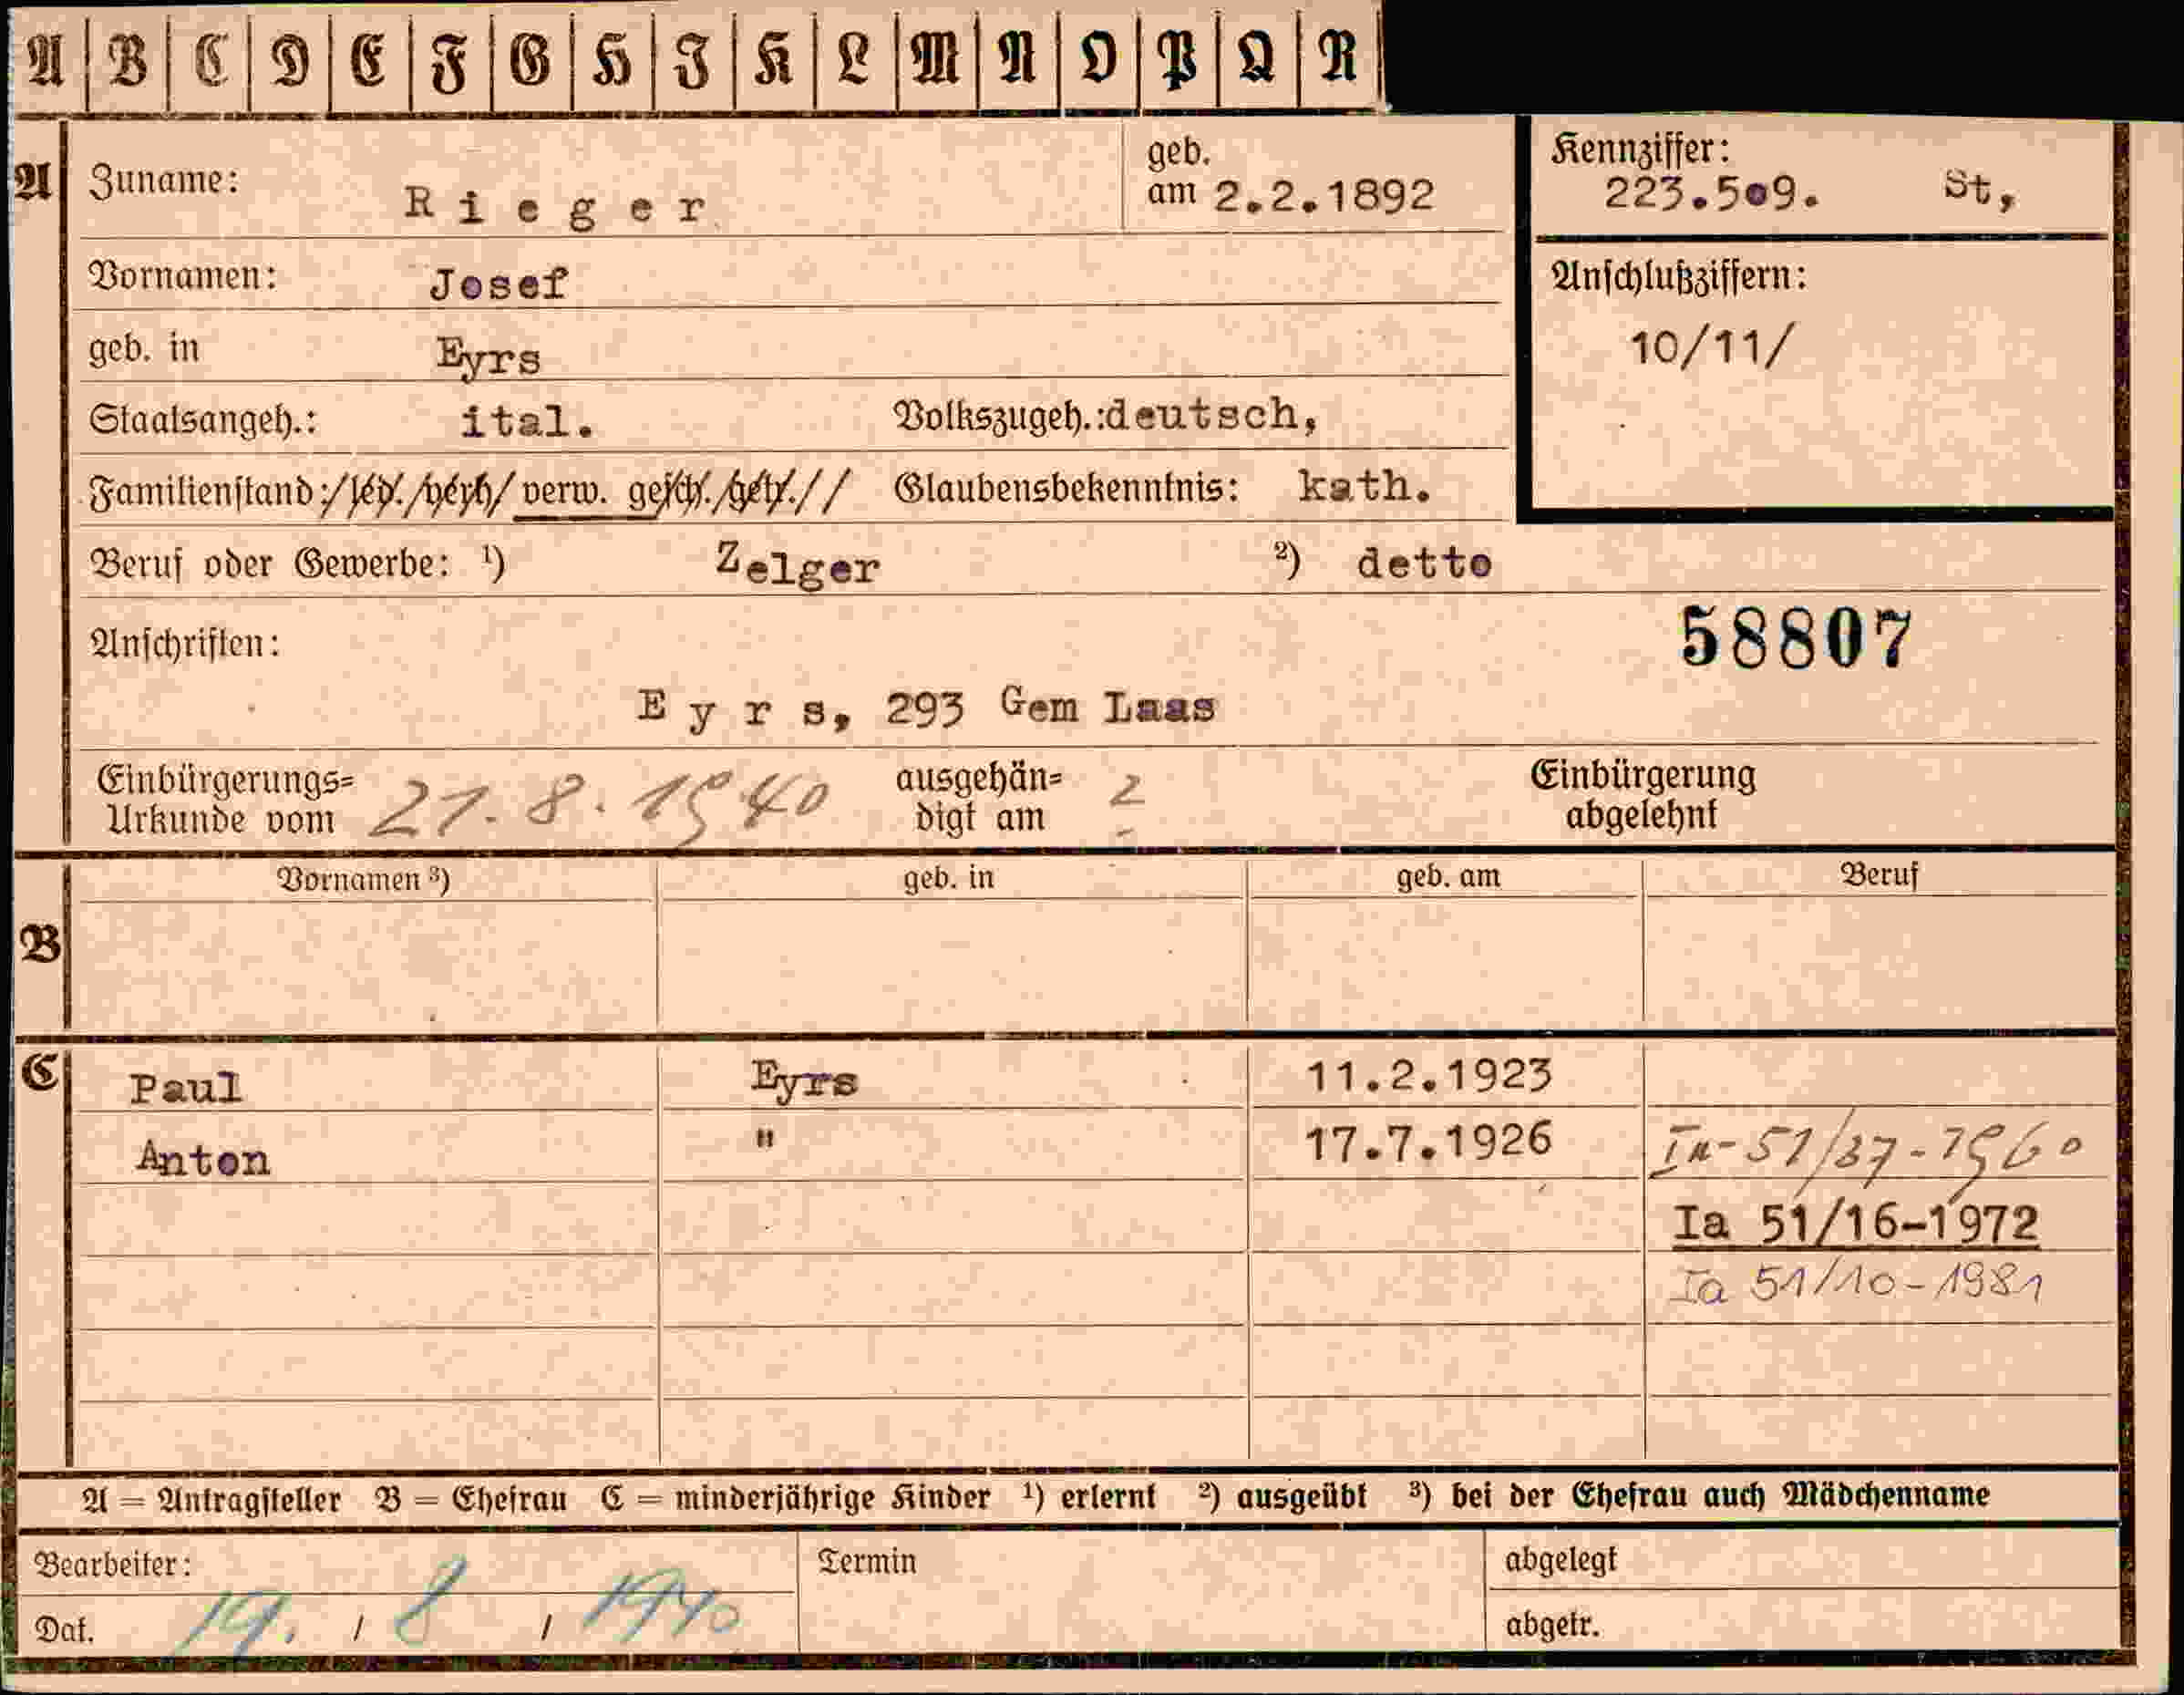 A B C D E F G H I K L M N O P Q R
A Zuname: Rieger geb. am 2.2.1892 Kennziffer: 223.509. St,
Vornamen: Josef Anschlußziffern:
geb. in Eyrs 10/11/
Staatsangeh.: ital. Volkszugeh.: deutsch,
Familienstand: /led./verh/ verw. gesch./getr.// Glaubensbekenntnis: kath.
Beruf oder Gewerbe: ¹) Zelger ²) detto
Anschriften: 58807
Eyrs, 293 Gem Laas
Einbürgerungs= ausgehän= Einbürgerung
Urkunde vom 21.8.1940 digt am ? abgelehnt
Vornamen ³) geb. in geb. am Beruf
B
C Paul Eyrs 11.2.1923
Anton " 17.7.1926 Ia-51/37-1960
Ia 51/16-1972
Ia 51/10-1981
A = Antragsteller B = Ehefrau C = minderjährige Kinder ¹) erlernt ²) ausgeübt ³) bei der Ehefrau auch Mädchenname
Bearbeiter: Termin abgelegt
Dat. 19. / 8 / 1940 abgetr.